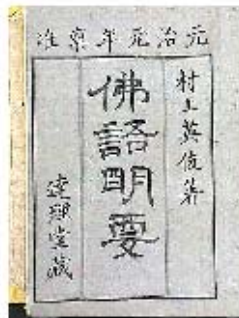 元治元年稟准
村上英俊著
佛語明要
達理堂藏